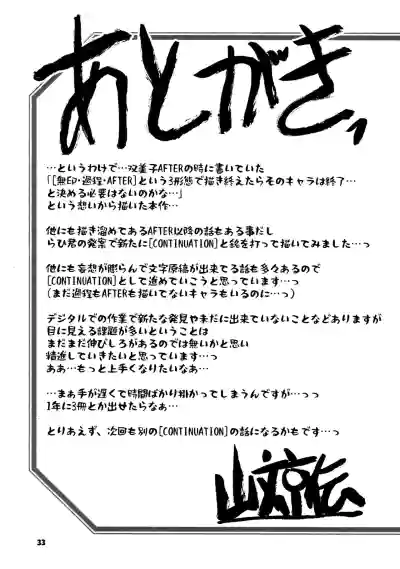 あとがきっ
…というわけで…双葉子AFTERの時に書いていた
「[無印・過程・AFTER]という3形態で描き終えたらそのキャラは終了…
と決める必要はないのかな…」
という想いから描いた本作…
他にも描き溜めてあるAFTER以降の話もある事だし
らぴ君の発案で新たに[CONTINUATION]と銘を打って描いてみました…っ
他にも妄想が膨らんで文字原稿が出来てる話も多々あるので
[CONTINUATION]として進めていこうと思っています…っ
(まだ過程もAFTERも描いてないキャラもいるのに…っ)
デジタルでの作業で新たな発見や未だに出来ていないことなどありますが
目に見える課題が多いということは
まだまだ伸びしろがあるのでは無いかと思い
精進していきたいと思っています…っ
ああ…もっと上手くなりたいなあ…
…まぁ手が遅くて時間ばかり掛かってしまうんですが…っっ
1年に3冊とか出せたらなぁ…
とりあえず、次回も別の[CONTINUATION]の話になるかもです…っ
山文京伝
33